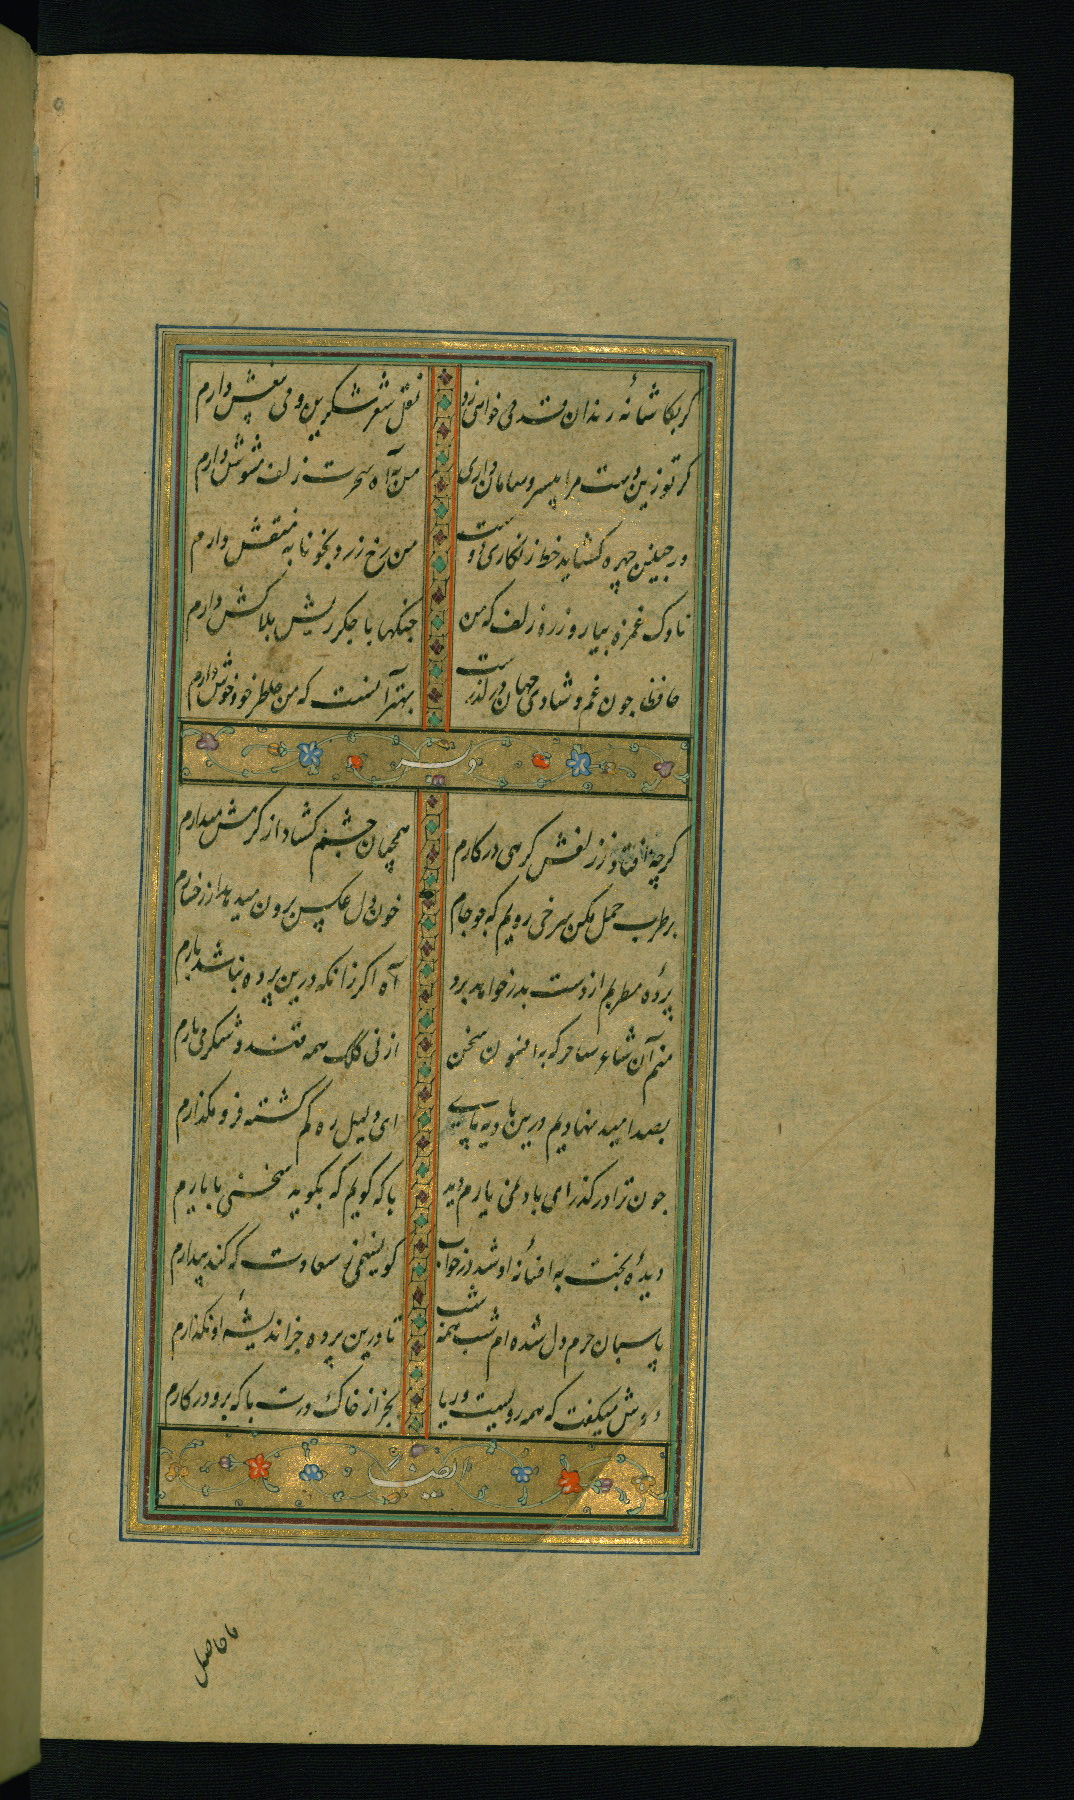 گر بکاشانهٔ رندان قدمی خواهی زد نقل شعر شکرین و می بیغش دارم
گر تو زین دست مرا بی سر و سامان داری من بآه سحرت زلف مشوش دارم
ور چنین چهره گشاید خط زنگاری دوست من رخ زرد بخونابه منقش دارم
ناوک غمزه بیار و زره زلف که من جنگها با جگر ریش بلاکش دارم
حافظا چون غم و شادی جهان در گذرست بهتر آنست که من خاطر خود خوش دارم
وله
گرچه افتاد ز زلفش گرهی در کارم همچنان چشم گشاد از کرمش میدارم
بر طرب حمل مکن سرخی رویم که چو جام خون دل عکس برون میدهد از رخسارم
پردهٔ مطربم از دست بدر خواهد برد آه اگر زانکه درین پرده نباشد بارم
منم آن شاعر ساحر که بافسون سخن از نی کلک همه قند و شکر می بارم
بصد امید نهادیم درین بادیه پای ای دلیل ره گم گشته فرو مگذارم
چون ترا در گذر ای باد نمی یارم دید با که گویم که بگوید سخنی با یارم
دیدهٔ بخت به افسانهٔ او شد در خواب کو نسیمی ز سعادت که کند بیدارم
پاسبان حرم دل شده ام شب همه شب تا درین پرده جز اندیشهٔ او نگذارم
دوش میگفت که همه رویست و ریا بجز از خاک درت با که بود در کارم
ایضا
ما حاصل